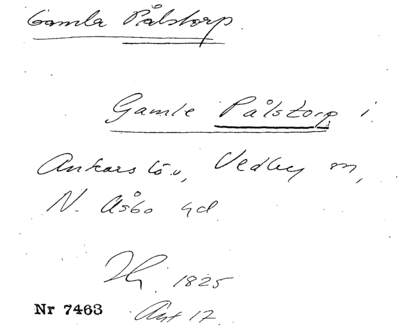 Gamla Pålstorp.
Gamle Pålstorp i
Ankarslöv, Vedby sn,
N. Åsbo hd
1825
Nr 7463 Akt 17.